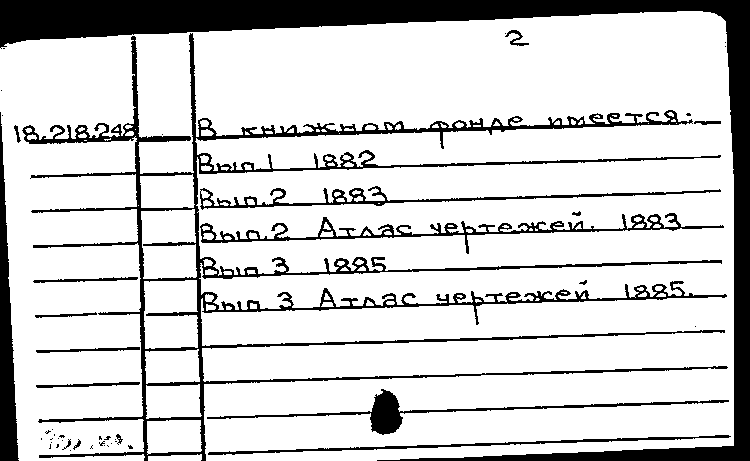 2
18.218.248 В книжном фонде имеется:
Вып.1 1882
Вып.2 1883
Вып.2 Атлас чертежей. 1883
Вып 3 1885
Вып. 3 Атлас чертежей 1885.